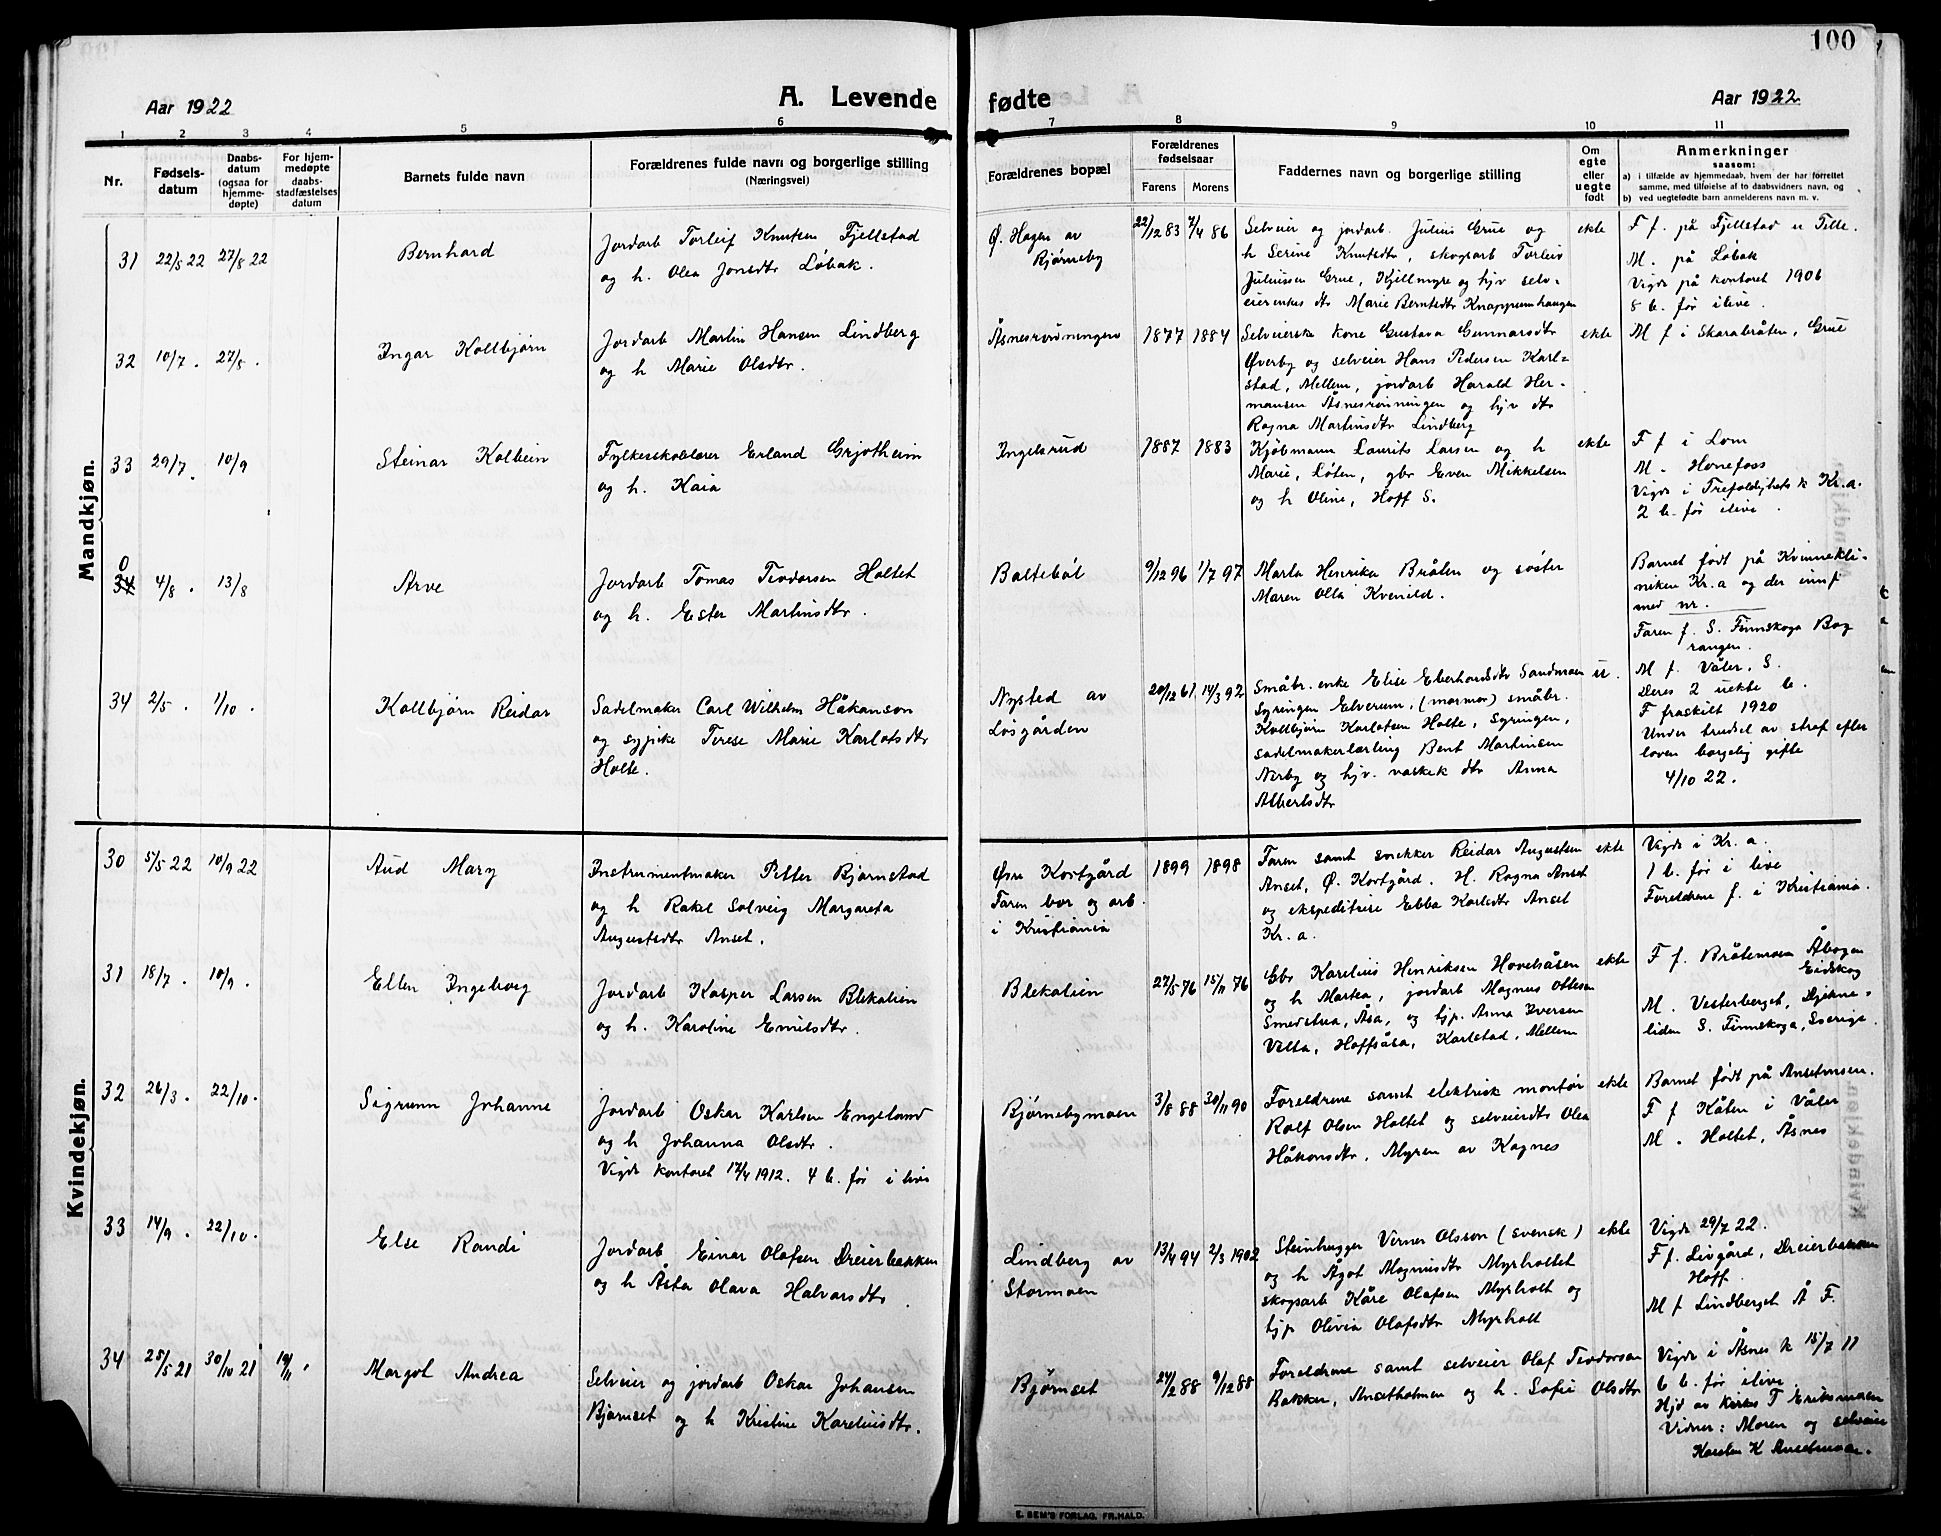 100
Aar 1922
A. Levende
fødte
Aar 1922
1 2 3 4 5 6 7 8 9 10 11
Nr.
Fødsels-
datum
Daabs-
datum
(ogsaa for
hjemme-
døpte)
For hjem-
medøpte
daabs-
stadfæstelses
datum
Barnets fulde navn
Forældrenes fulde navn og borgerlige stilling
(Næringsvei)
Forældrenes bopæl
Forældrenes
fødselsaar
Farens. Morens.
Faddernes navn og borgerlige stilling
Om
egte
eller
uegte
født
Anmerkninger
saasom:
a) i tilfælde av hjemmedaab, hvem der har forrettet
samme, med tilføielse af to daabsvidners navn, og
b) ved uegtefødte barn anmelderens navn m. v.
Mandkjøn.
31 22/5 22 27/8 22
Bernhard
Jordarb Torleif Knutsen Fjellstad
og h. Olea Jonsdtr Løbak.
Ø. Hagen av
Bjørneby
22/12 83 7/4 86
Selveier og jordarb. Julius Grue og
h Serine Knutsdtr, skogsarb Torleiv
Juliussen Grue, Kjellmyre og hjv selv-
eierenkes dtr Marie Berntsdtr Knappumhaugen
ekte
F f. på Fjellstad u Tille.
M. på Løbak
Vigde på kontoret 1906
8 b. før ilive.
32 10/7. 27/8.
Ingar Kollbjørn
Jordarb Martin Hansen Lindberg
og h Marie Olsdtr.
Åsnesrønningen
1877 1884
Selveierske kone Gustava Gunnarsdtr
Øverby og selveier Hans Pedersen Karl-
stad, Mellem, jordarb Harald Her-
mansen Åsnesrønningen og hjv dtr
Ragna Martinsdtr Lindberg
ekte
M f i Skarabråten, Grue
33 29/7. 10/9
Steinar Kolbein
Fylkesskolelærer Erland Grjotheim
og h. Kaia
Ingelsrud
1887 1883
Kjøbmann Laurits Larsen og h
Marie, Løten, gbr Even Mikkelsen
og h Oline, Hoff S.
ekte
F f i Lom
M. Hønefoss
Vigde i Trefoldighets k Kr.a.
2 b. før ilive.
0
34 4/8. 13/8
Arve
Jordarb Tomas Teodorsen Holtet
og h. Ester Martinsdtr.
Baltebøl
9/12 96 1/7 97
Marta Henrika Bråten og søster
Maren Olla Kvenild.
Barnet født på Kvinnekli-
niken Kr.a og der innf
med nr.
Faren f. S. Finnskoga Bog
rangen.
M f. Våler, S.
34 2/5. 1/10.
Kollbjørn Reidar
Sadelmaker Carl Wilhelm Håkanson
og sypike Terese Marie Karlotsdtr
Holte.
Nysted av
Løsgården
20/12 61 14/3 92
Småbr. enke Elise Eberhardsdtr Sandmoen
Syringen Elverum, (mormor) småbr.
Kollbjørn Karlotsen Holte, Syringen,
sadelmakerlærling Bent Martinsen
Nerby og hjv. vaskek dtr Anna
Albertsdtr
u.
Deres 2 uekte b.
F fraskilt 1920
Under trudsel av straf efter
loven borgelig gifte
4/10 22.
Kvindekjøn.
30 5/5 22 10/9 22
Aud Mary
Instrumentmaker Petter Bjørnstad
og h Rakel Solveig Margareta
Augustsdtr Anset.
Øvre Kortgård
Faren bor og arb.
i Kristiania
1899 1898
Faren samt snekker Reidar Augustsen
Anset, Ø. Kortgård. H. Ragna Anset
og ekspeditrise Ebba Karlsdtr Anset
Kr. a.
ekte
Vigde i Kr. a.
1 b. før i live
Foreldrene f. i Kristiania.
31 18/7. 10/9.
Ellen Ingeborg
Jordarb Kasper Larsen Blekalien
og h. Karoline Emilsdtr.
Blekalien
27/5 76 15/11 76
Gbr Karelius Henriksen Hovelsåsen
og h Martea, jordarb Magnus Ottesen
Smedstua, Åsa, og hjp. Anna Iversen
Velta, Hoffsåsa, Karlstad, Mellem
ekte
F f. Bråtemoen Åbogen
Eidskog
M. Vesterberget, Djekne-
liden S. Finnskoga, Sverige.
32 26/3. 22/10.
Sigrunn Johanne
Jordarb Oskar Karlsen Engeland
og h Johanna Olsdtr.
Vigde kontoret 17/4 1912. 4 b. før i live
Bjørnebymoen
3/8 88 30/11 90
Foreldrene samt elektrisk montør
Rolf Olsen Holtet og selveierdtr Olea
Håkonsdtr, Myren av Kagnes
ekte
Barnet født på Ansetmoen.
F f Kåten i Våler
M. Holtet, Åsnes
33 14/9. 22/10.
Else Randi
Jordarb Einar Olafsen Dreierbakken
og h Åsta Olava Halvarsdtr.
Lindberg av
Stormoen
13/4 94 2/3 1902
Steinhugger Verner Olsson (svensk)
og h Ågot Magnusdtr Myrholtet
skogsarb Kåre Olafsen Myrholt og
hjp Olivia Olafsdtr Myrholt
ekte
Vigde 29/7 22.
F f. Livgård, Dreierbakken
Hoff.
M f Lindberget Å F.
34 25/5 21 30/10 21 19/11
Margot Andrea
Selveier og jordarb Oskar Johansen
Bjørnset og h Kristine Kareliusdtr.
Bjørnset
24/2 88 9/12 88
Foreldrene samt selveier Olaf Teodorsen
Bakken, Ansetholmen og h. Sofie Olsdtr
Vigde i Åsnes k 15/7 11
6 b. før ilive.
Hjd av kirkes T Eriksmoen
Vidner: Moren og selveier
Karsten K Ansetmoen.
E. SEM'S FORLAG, FR.HALD.